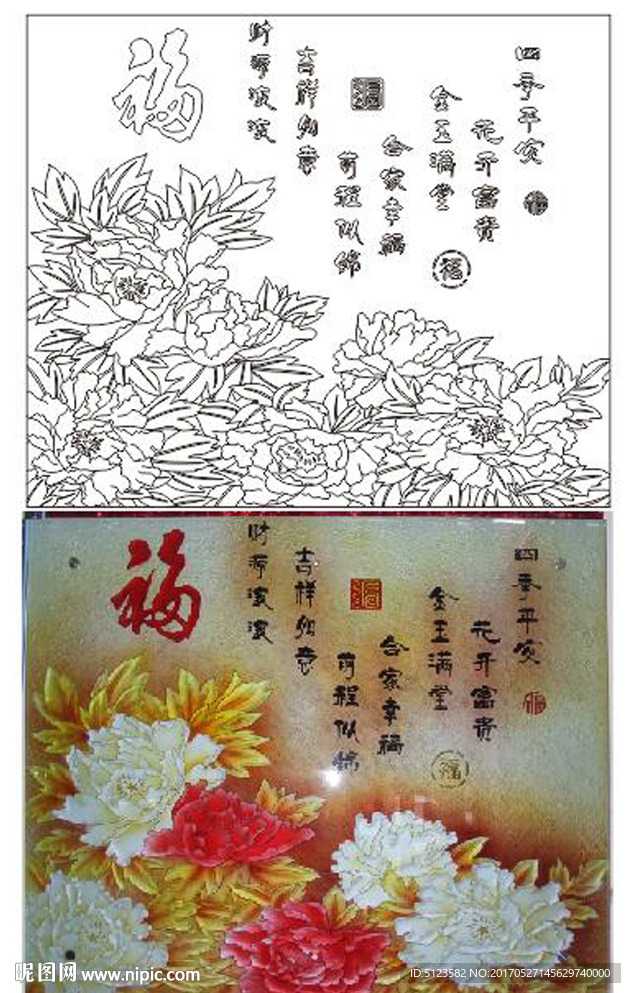 四季平安
福
花开富贵
金玉满堂
福
合家幸福
福
前程似锦
吉祥如意
财源滚滚
福
四季平安
福
花开富贵
金玉满堂
福
合家幸福
福
前程似锦
吉祥如意
财源滚滚
福
昵图网 www.nipic.com
ID:5123582 NO:20170527145629740000